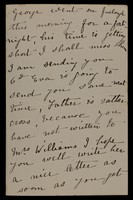 George went on furlough
this morning for a fort
night, his time is getting
short I shall miss him
I am sending you
6d Eva is going to
send you some next
time, Father is rather
cross, because you
have not written to
Mrs Williams I hope
you will write her
a nice letter as
soon as you get